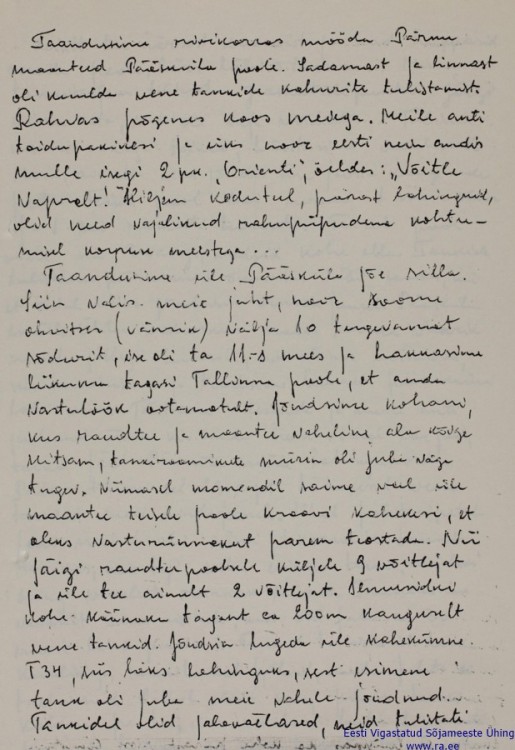 Taandusime rivikorras mööda Pärnu
maanteed Pääsküla poole. Sadamast ja linnast
oli kuulda vene tankide kahurite tulistamist.
Rahvas põgenes koos meiega. Meile anti
toidupakikesi ja üks noor eesti neiu andis
mulle isegi 2 pk. "Orienti", öeldes: "Võitle
vapralt! Hiljem kodutul, pärast lahinguid,
olid need vajalikud rahupiipudena kohtu-
misel korpuse meestega...
Taandusime üle Pääsküla jõe silla.
Siin valis meie juht, noor Soome
ohvitser (vänrik) välja 10 tugevamat
sõdurit, ise oli ta 11-s mees ja hakkasime
liikuma tagasi Tallinna poole, et anda
vastulöök ootamatult. Jõudsime kohani,
kus raudtee ja maantee vaheline ala kõige
kitsam, tankiroomikute mürin oli juba väga
tugev. Viimasel momendil saime veel üle
maantee teisele poole kraavi kahekesi, et
oleks vasturünnakut parem teostada. Nii
jäigi raudteepoolsele küljele 9 võitlejat
ja üle tee ainult 2 võitlejat. Ilmusidki
kohe käänaku tagant ca 200m kauguselt
vene tankid. Jõudsin lugeda üle kahekümne
T34, siis läks lahinguks, sest esimene
tank oli juba meie vahele jõudnud.
Tankidel olid jalaväelased, neid tulitati
Eesti Vigastatud Sõjameeste Ühing
www.ra.ee